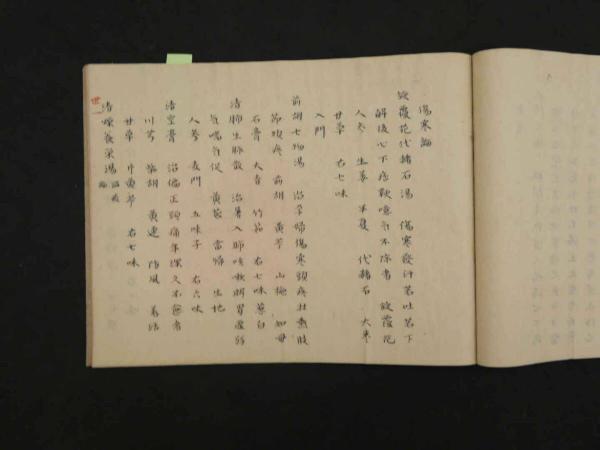 傷寒論
旋覆花代赭石湯 傷寒發汗若吐若下
解後心下痞鞕噫气不除者 旋覆花
人參 生姜 半夏 代赭石 大棗
甘草 右七味
入門
前胡七物湯 治孕婦傷寒頭疼壯熱肢
節煩疼 前胡 黄芩 山梔 知母
石膏 大青 竹茹 右七味葱白
清肺生脉散 治暑入肺咳嗽
气喘气促 黄芪 當帰 生地
人參 麦門 五味子 右六味
清空膏 治偏正頭痛年深久不愈者
川芎 柴胡 黄連 防風 羌活
甘草 片黄芩 右七味
清燥養栄湯